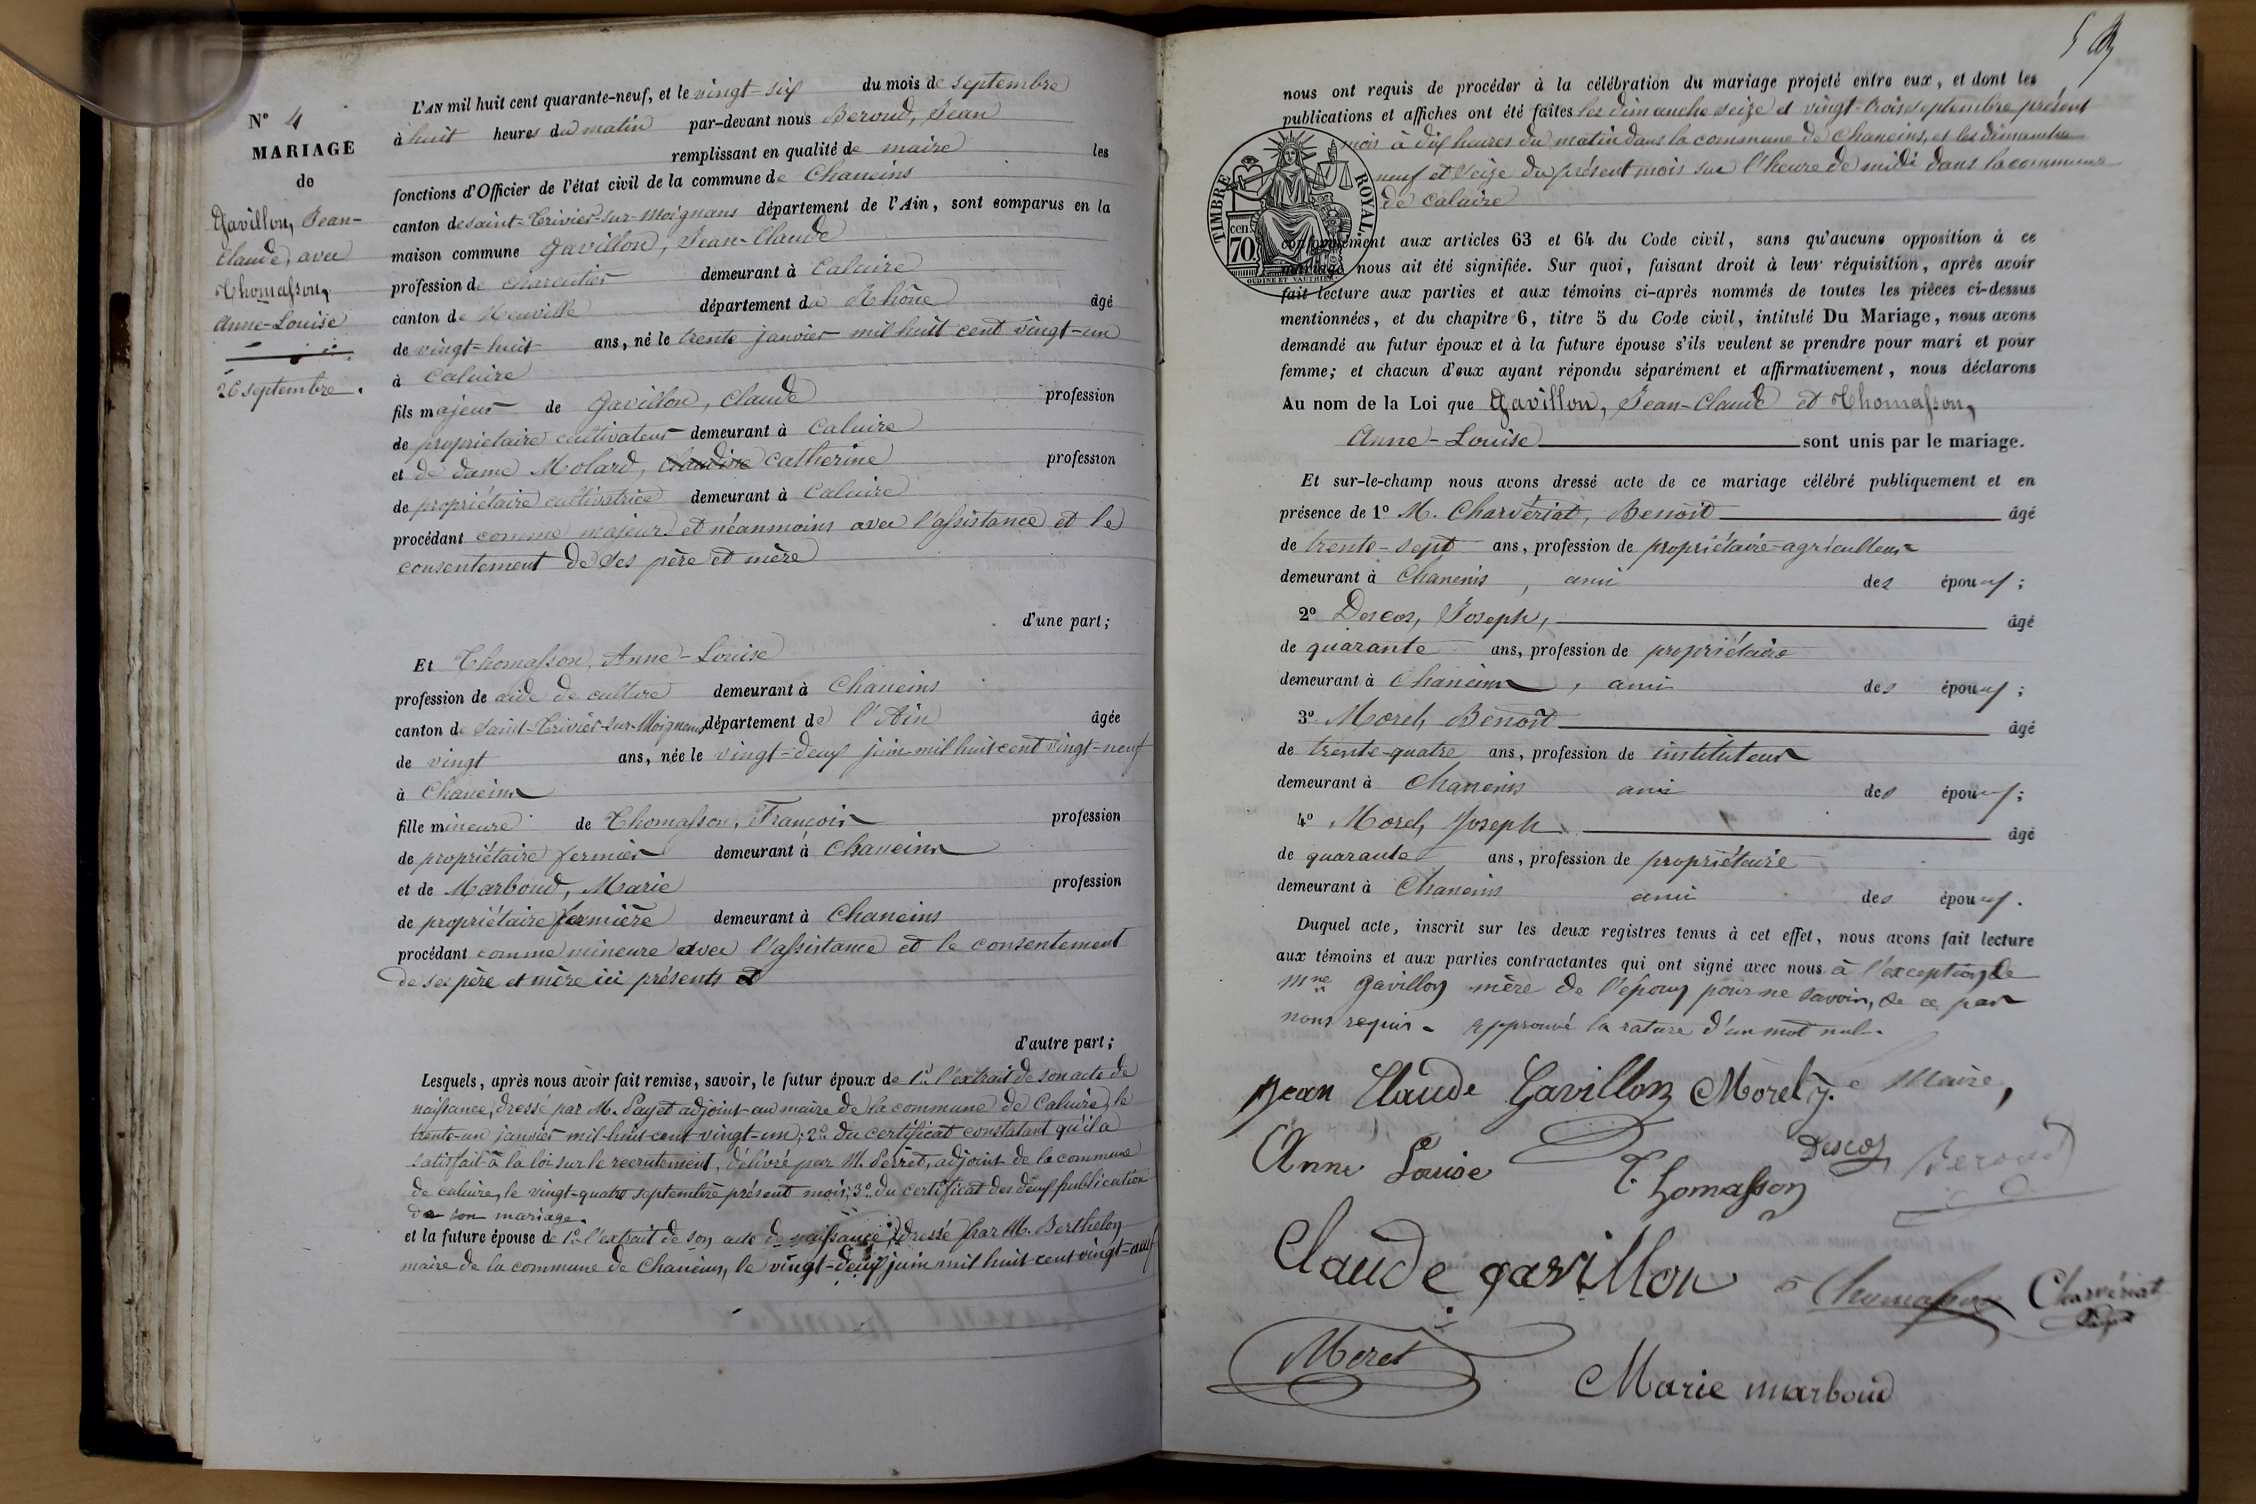 N° 4
MARIAGE
de
Gavillon, Jean-
Claude, avec
Thomasson,
Anne-Louise
26 septembre.
L'AN mil huit cent quarante-neuf, et le vingt-six du mois de septembre
à huit heures du matin par-devant nous Beroud, Jean
remplissant en qualité de maire les
fonctions d'Officier de l'état civil de la commune de Chaneins
canton de saint-Trivier-sur-Moignans département de l'Ain, sont comparus en la
maison commune Gavillon, Jean-Claude
profession de charcutier demeurant à Caluire
canton de Neuville département du Rhône âgé
de vingt-huit ans, né le trente janvier mil huit cent vingt-un
à Caluire
fils majeur de Gavillon, Claude profession
de propriétaire cultivateur demeurant à Caluire
et de dame Molard, Claudine Catherine profession
de propriétaire cultivatrice demeurant à Caluire
procédant comme majeur et néanmoins avec l'assistance et le
consentement de ses père et mère
d'une part;
Et Thomasson, Anne-Louise
profession de aide de culture demeurant à Chaneins
canton de Saint-Trivier-sur-Moignans département de l'Ain âgée
de vingt ans, née le vingt-deux juin mil huit cent vingt-neuf
à Chaneins
fille mineure de Thomasson, François profession
de propriétaire fermier demeurant à Chaneins
et de Marboud, Marie profession
de propriétaire fermière demeurant à Chaneins
procédant comme mineure avec l'assistance et le consentement
de ses père et mère ici présents et
d'autre part;
Lesquels, après nous avoir fait remise, savoir, le futur époux de 1° l'extrait de son acte de
naissance, dressé par M. Payet adjoint au maire de la commune de Caluire, le
trente-un janvier mil-huit-cent-vingt-un; 2° du certificat constatant qu'il a
satisfait à la loi sur le recrutement, délivré par M. Perret, adjoint de la commune
de caluire, le vingt-quatre septembre présent mois; 3° du certificat des deux publication
de son mariage.
et la future épouse de 1° l'extrait de son acte de naissance, dressé par M. Berthelon
maire de la commune de Chaneins, le vingt-deux juin mil huit-cent-vingt-neuf
nous ont requis de procéder à la célébration du mariage projeté entre eux, et dont les
publications et affiches ont été faites les dimanche seize et vingt-trois septembre présent
mois à dix heures du matin dans la commune de Chaneins, et les dimanches
neuf et seize du présent mois sur l'heure de midi dans la commune
de caluire
TIMBRE ROYAL.
cen
70
OUDINÉ ET VAUTHIER
conformément aux articles 63 et 64 du Code civil, sans qu'aucune opposition à ce
mariage nous ait été signifiée. Sur quoi, faisant droit à leur réquisition, après avoir
fait lecture aux parties et aux témoins ci-après nommés de toutes les pièces ci-dessus
mentionnées, et du chapitre 6, titre 5 du Code civil, intitulé Du Mariage, nous avons
demandé au futur époux et à la future épouse s'ils veulent se prendre pour mari et pour
femme; et chacun d'eux ayant répondu séparément et affirmativement, nous déclarons
Au nom de la Loi que Gavillon, Jean-Claude et Thomasson,
Anne-Louise sont unis par le mariage.
Et sur-le-champ nous avons dressé acte de ce mariage célébré publiquement et en
présence de 1° M. Charvériat, Benoit âgé
de trente-sept ans, profession de propriétaire-agriculteur
demeurant à Chaneins, ami des époux;
2° Descos, Joseph, âgé
de quarante ans, profession de propriétaire
demeurant à Chaneins, ami des époux;
3° Morel, Benoît âgé
de trente-quatre ans, profession de instituteur
demeurant à Chaneins ami des époux;
4° Morel, Joseph âgé
de quarante ans, profession de propriétaire
demeurant à Chaneins ami des époux.
Duquel acte, inscrit sur les deux registres tenus à cet effet, nous avons fait lecture
aux témoins et aux parties contractantes qui ont signé avec nous à l'exception de
Mme Gavillon mère de l'époux pour ne savoir, de ce par
nous requis. approuvé la rature d'un mot nul.
Jean Claude Gavillon Morel J. Le Maire,
Anne Louise Thomasson Descos Beroud
Claude gavillon Thomasson Charvériat
Morel
Marie marboud